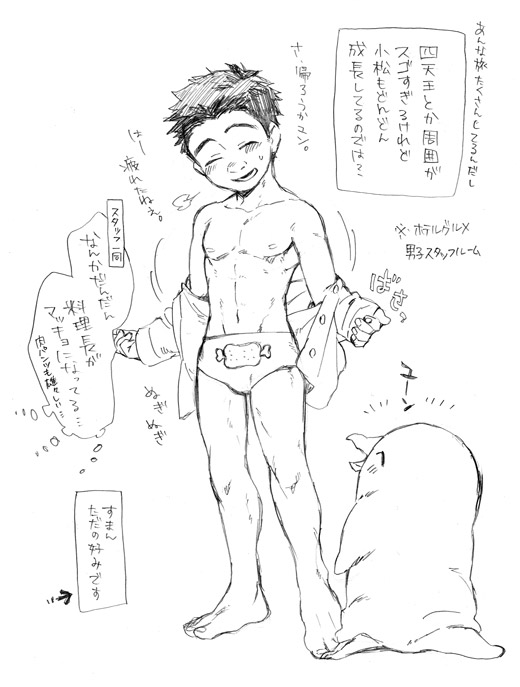 あんな旅たくさんしてるんだし
四天王とか周囲が
スゴすぎるけれど
小松もどんどん
成長してるのでは?
さ、帰ろうかユン。
はー
疲れたねぇ。
※ホテルグルメ
男子スタッフルーム
ばさっ
スタッフ一同
なんかだんだん
料理長が
マッチョになってる…
肉パンツも雄々しい…
ぬぎ
ぬぎ
ユーン
すまん
ただの好みです